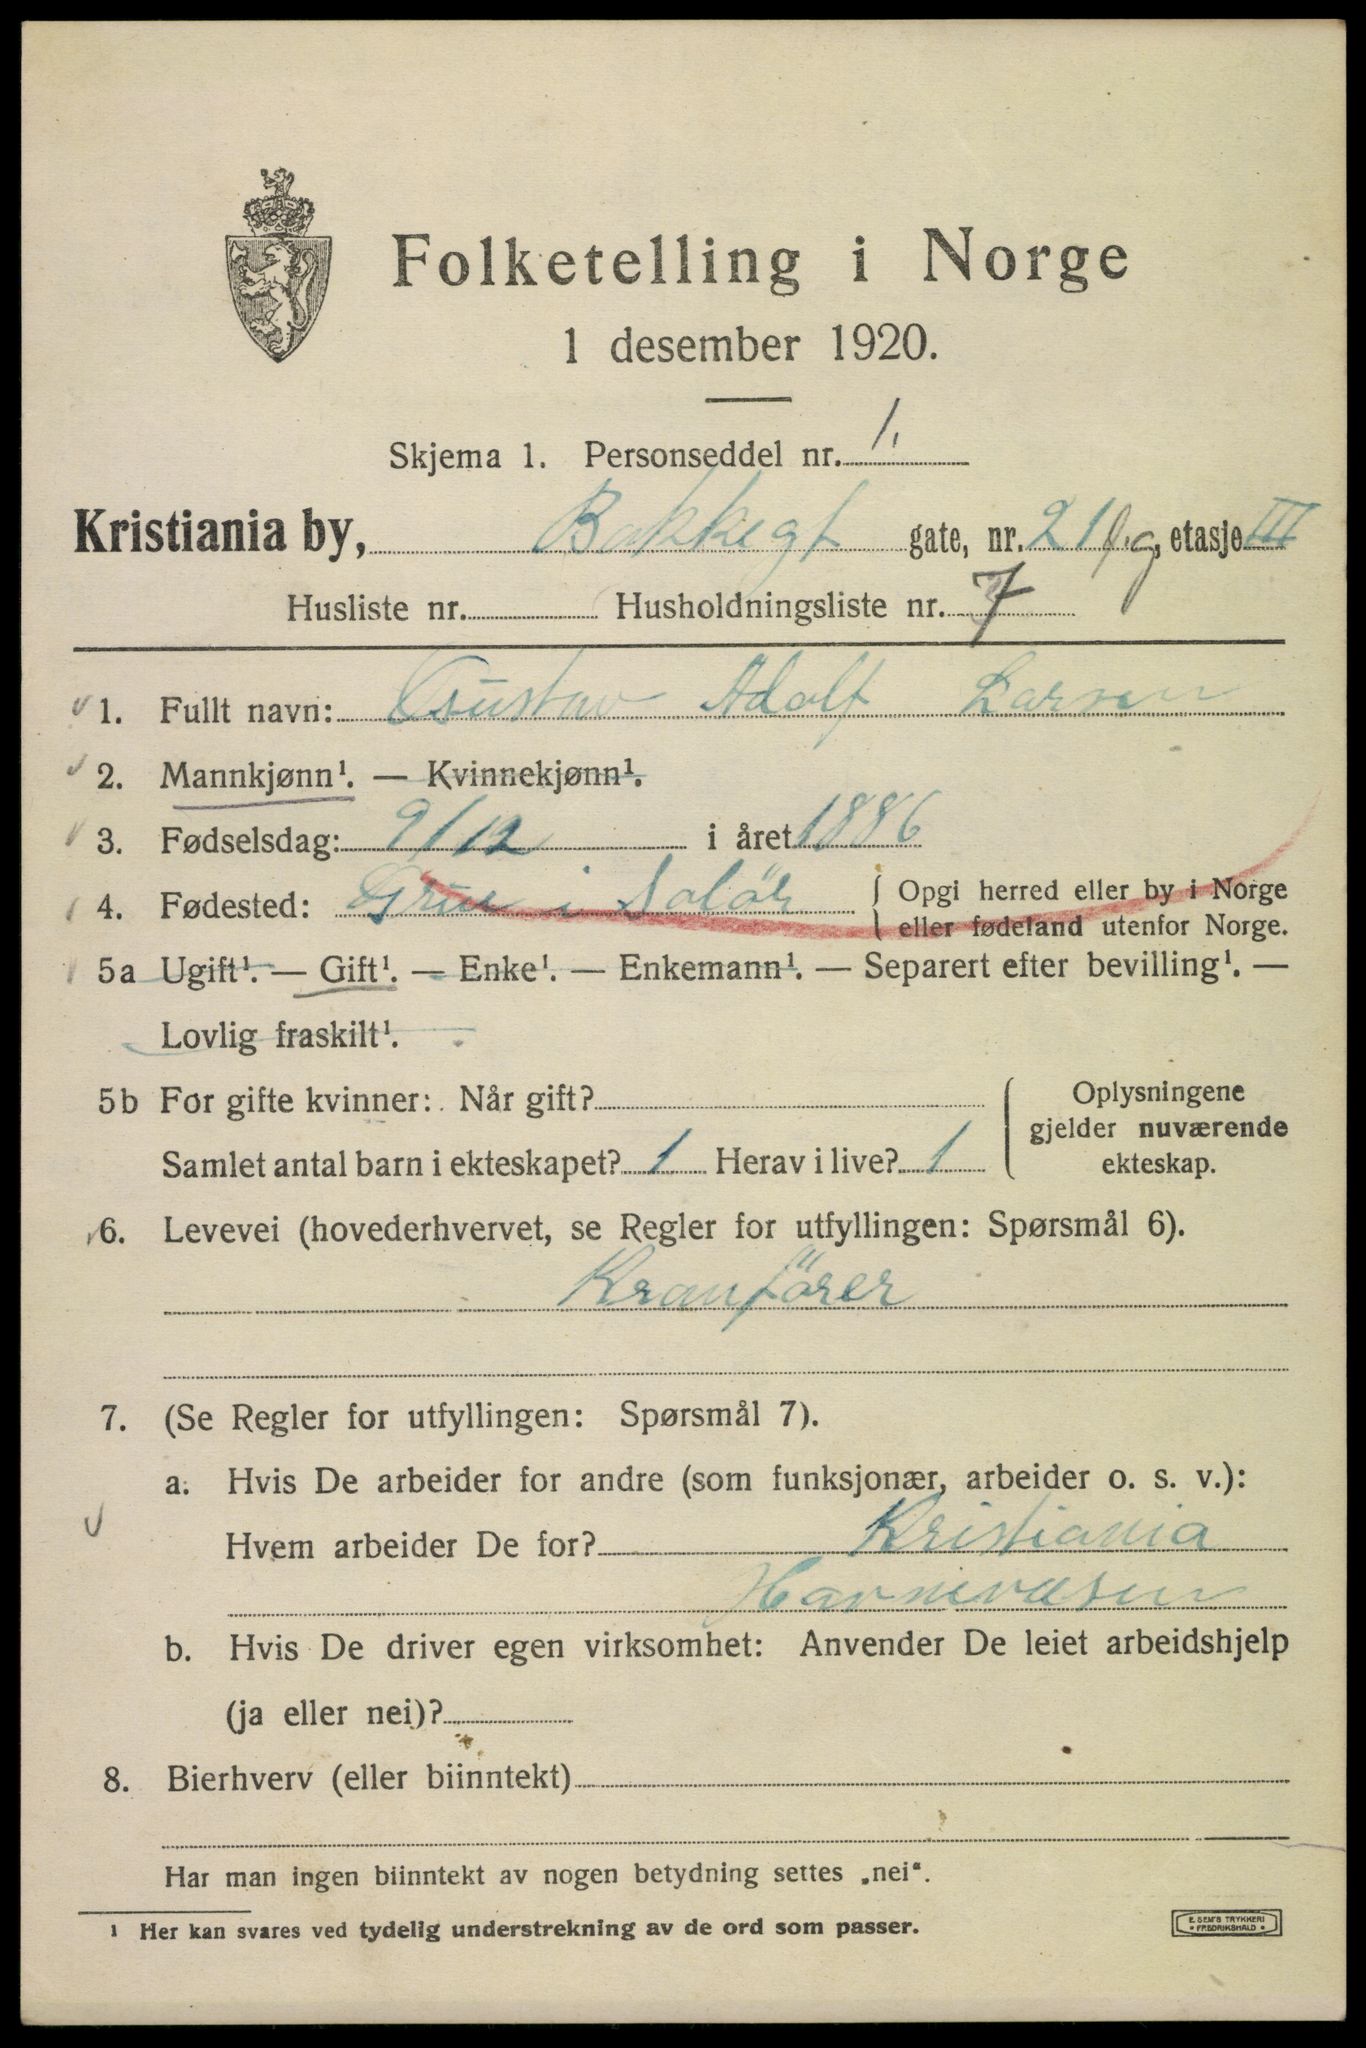 Folketelling i Norge
1 desember 1920.
Skjema 1. Personseddel nr. 1.
Kristiania by, Bakkegt gate, nr. 21 l.g, etasje III
Husliste nr. Husholdningsliste nr. 7
1. Fullt navn: Gustav Adolf Larsen
2. Mannkjønn¹. — Kvinnekjønn¹.
3. Fødselsdag: 9/12 i året 1886
4. Fødested: Grue i Solör { Opgi herred eller by i Norge
eller fødeland utenfor Norge.
5a Ugift¹. — Gift¹. — Enke¹. — Enkemann¹. — Separert efter bevilling¹. —
Lovlig fraskilt¹.
5b For gifte kvinner: Når gift? Oplysningene
gjelder nuværende
Samlet antal barn i ekteskapet? 1 Herav i live? 1 ekteskap.
6. Levevei (hovederhvervet, se Regler for utfyllingen: Spørsmål 6).
Kranförer
7. (Se Regler for utfyllingen: Spørsmål 7).
a. Hvis De arbeider for andre (som funksjonær, arbeider o. s. v.):
Hvem arbeider De for? Kristiania
Havnevæsen
b. Hvis De driver egen virksomhet: Anvender De leiet arbeidshjelp
(ja eller nei)?
8. Bierhverv (eller biinntekt)
Har man ingen biinntekt av nogen betydning settes „nei“.
¹ Her kan svares ved tydelig understrekning av de ord som passer.
E. SEM'S TRYKKERI
* FREDRIKSHALD *